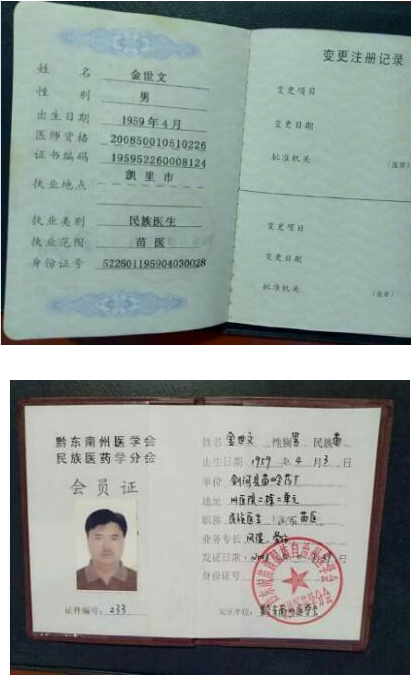 姓 名 金世文
性 别 男
出生日期 1959年4月
医师资格 200850010510226
证书编码 195952260008124
执业地点 凯里市
执业类别 民族医生
执业范围 苗医
身份证号 522601195904030028
变更注册记录
变更项目
变更日期
批准机关 (盖章)
变更项目
变更日期
批准机关 (盖章)
黔东南州医学会
民族医药学分会
会员证
证件编号: 233
姓名 金世文 性别 男 民族 苗
出生日期 1959 年 4 月 3 日
单位
地址 州医院二栋二单元
职称 民族医生 苗医
业务专长 风湿
发证日期
身份证号
发证单位: 黔东南州医学会